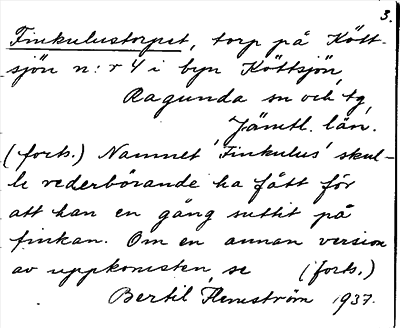 3.
Finkulustorpet, torp på Kött-
sjön n:r 4 i byn Köttsjön,
Ragunda sn och tg,
Jämtl. län.
(forts.) Namnet 'Finkulus' skul-
le vederbörande ha fått för
att han en gång suttit på
finkan. Om en annan version
av uppkomsten, se (forts.)
Bertil Flemström 1937.